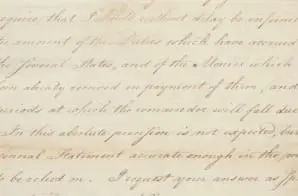 require, that I should without delay be inform
the amount of the Duties which have accrued
the several States, and of the Monies which
been already received in payment of them, and
periods at which the remainder will fall due
In this absolute precision is not expected, but
general Statement accurate enough in the
to be relied on. I request your answer as